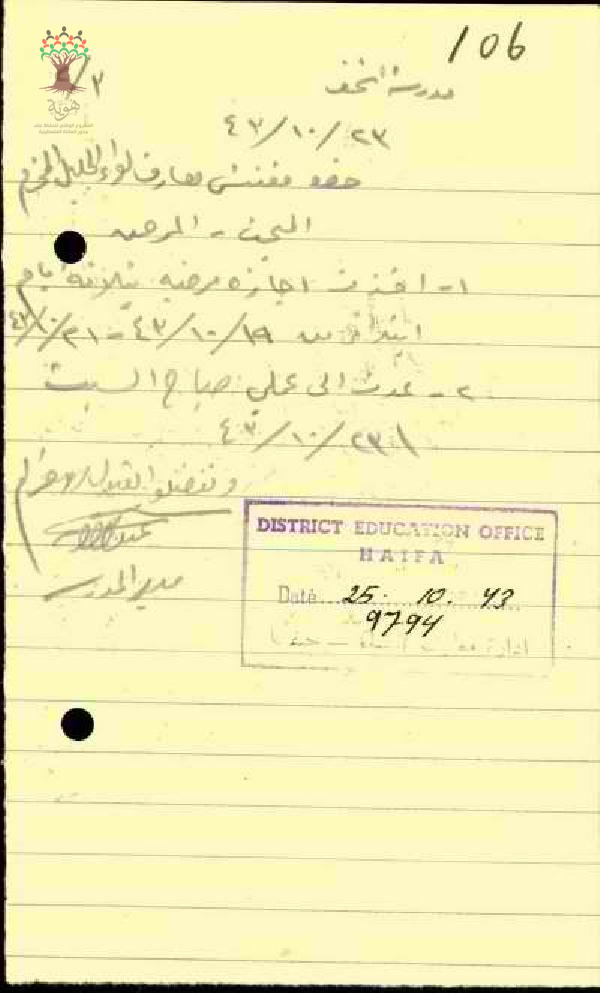 106
هوية
٣/
مدرسة
٤٣/١٠/٢٣
حضرة مفتش معارف لواء الجليل المحترم
المبحث - المرضية
١- اخذت اجازة مرضية ثلاثة ايام
ابتداء من ٤٣/١٠/١٩ - ٤٣/١٠/٢١
٢- عدت الى عملي صباح السبت
٤٣/١٠/٢٣
وتفضلوا بقبول احترامي
مدير المدرسة
DISTRICT EDUCATION OFFICE
HAIFA
Date 25. 10. 43
9794
ادارة معارف حيفا